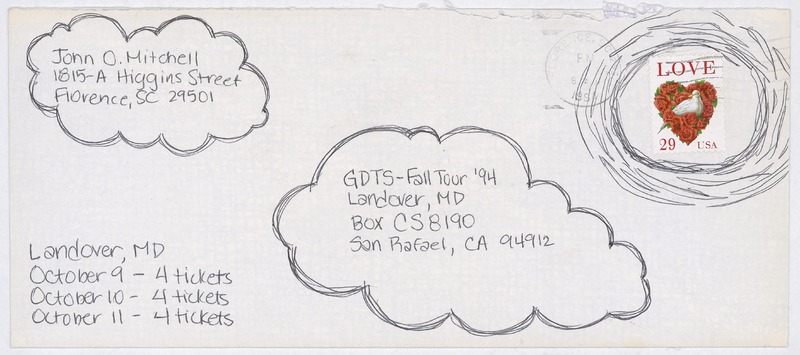 John O. Mitchell
1815-A Higgins Street
Florence, SC 29501
LOVE
29 USA
GDTS-Fall Tour '94
Landover, MD
Box CS8190
San Rafael, CA 94912
Landover, MD
October 9 - 4 tickets
October 10 - 4 tickets
October 11 - 4 tickets